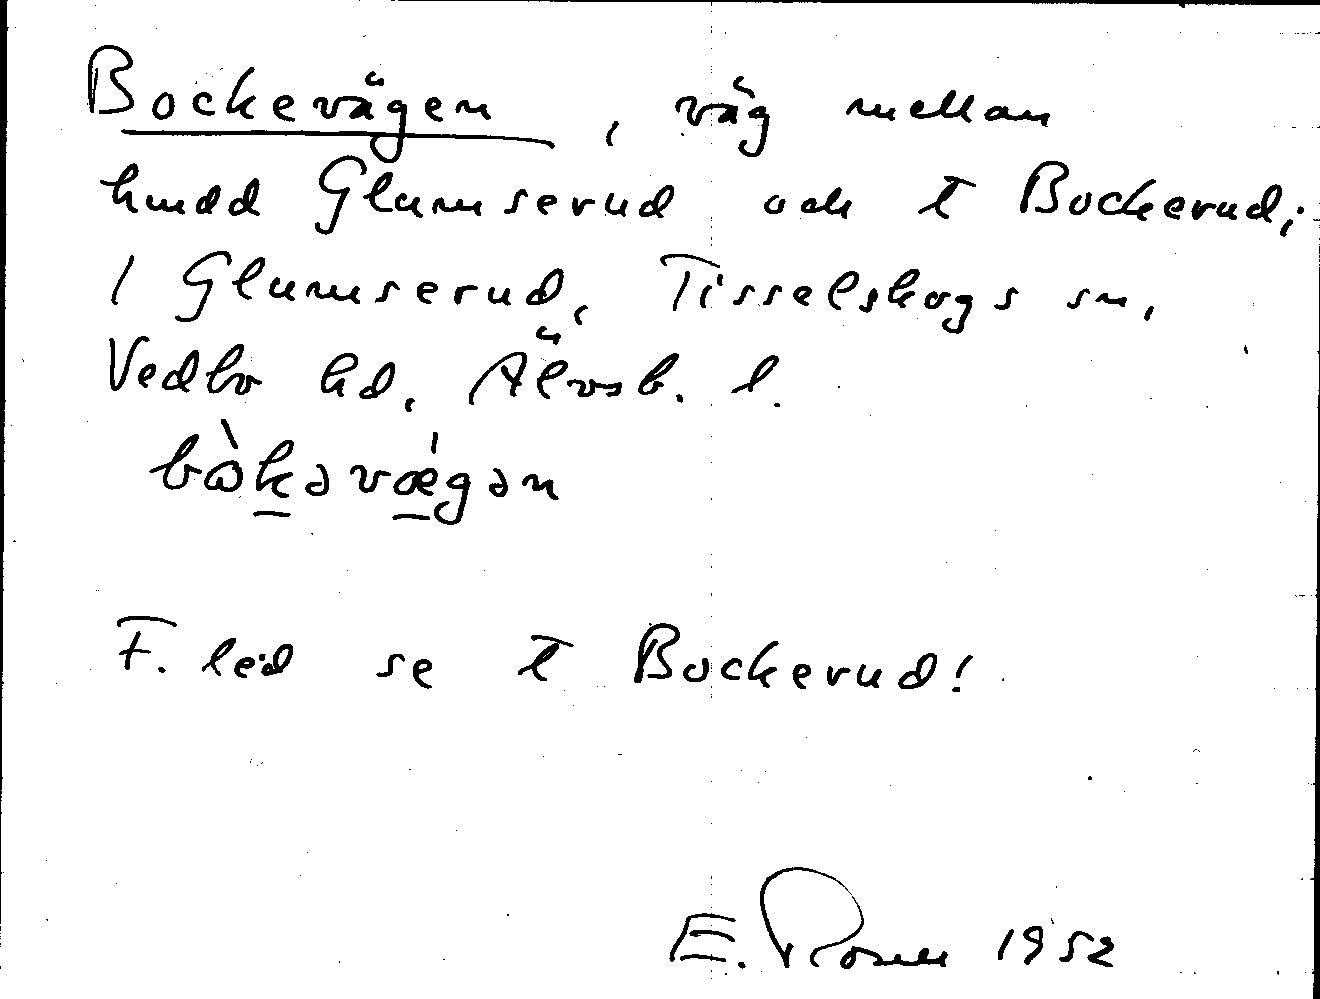 Bockevägen, väg mellan
hmdd Glumserud och t Bockerud;
1 Glumserud, Tisselskogs sn,
Vedbo hd, Älvsb. l.
bɷ̀kəvǽgən
F. led se t Bockerud!
E. Rosell 1952